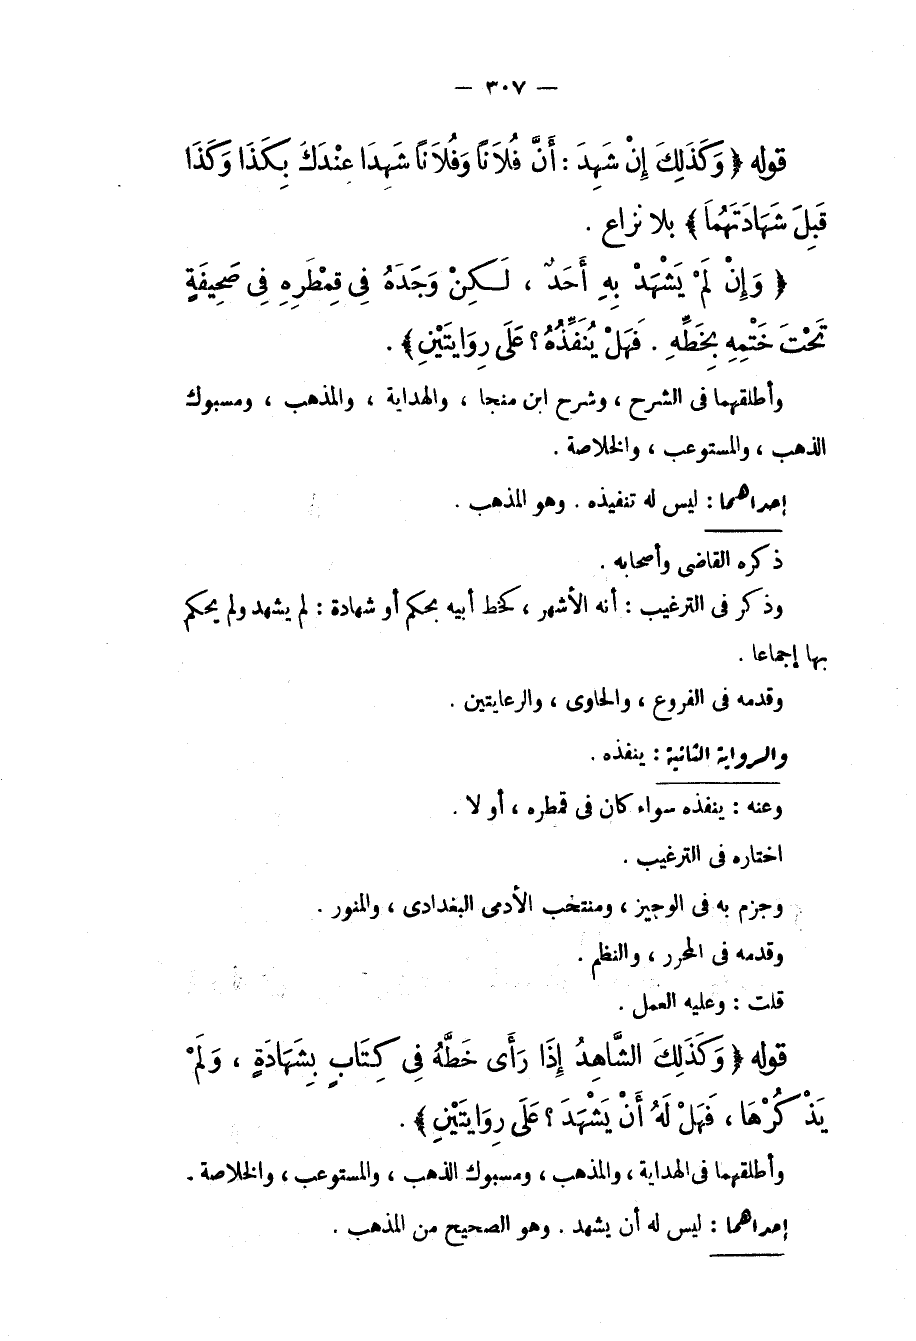 — ٣٠٧ —
قوله ﴿ وَكَذَلِكَ إِنْ شَهِدَ : أَنَّ فُلَانًا وَفُلَانًا شَهِدَا عِنْدَكَ بِكَذَا وَكَذَا
قَبِلَ شَهَادَتَهُمَا ﴾ بلا نزاع .
﴿ وَإِنْ لَمْ يَشْهَدْ بِهِ أَحَدٌ ، لَكِنْ وَجَدَهُ فِى قِمْطَرِهِ فِى صَحِيفَةٍ
تَحْتَ خَتْمِهِ بِخَطِّهِ . فَهَلْ يُنَفِّذُهُ ؟ عَلَى رِوَايَتَيْنِ ﴾ .
وأطلقهما فى الشرح ، وشرح ابن منجا ، والهداية ، والمذهب ، ومسبوك
الذهب ، والمستوعب ، والخلاصة .
إحداهما : ليس له تنفيذه . وهو المذهب .
ذكره القاضى وأصحابه .
وذكر فى الترغيب : أنه الأشهر ، كخط أبيه بحكم أو شهادة : لم يشهد ولم يحكم
بها إجماعا .
وقدمه فى الفروع ، والحاوى ، والرعايتين .
والرواية الثانية : ينفذه .
وعنه : ينفذه سواء كان فى قمطره ، أو لا .
اختاره فى الترغيب .
وجزم به فى الوجيز ، ومنتخب الأدمى البغدادى ، والمنور .
وقدمه فى المحرر ، والنظم .
قلت : وعليه العمل .
قوله ﴿ وَكَذَلِكَ الشَّاهِدُ إِذَا رَأَى خَطَّهُ فِى كِتَابٍ بِشَهَادَةٍ ، وَلَمْ
يَذْكُرْهَا ، فَهَلْ لَهُ أَنْ يَشْهَدَ ؟ عَلَى رِوَايَتَيْنِ ﴾ .
وأطلقهما فى الهداية ، والمذهب ، ومسبوك الذهب ، والمستوعب ، والخلاصة .
إحداهما : ليس له أن يشهد . وهو الصحيح من المذهب .